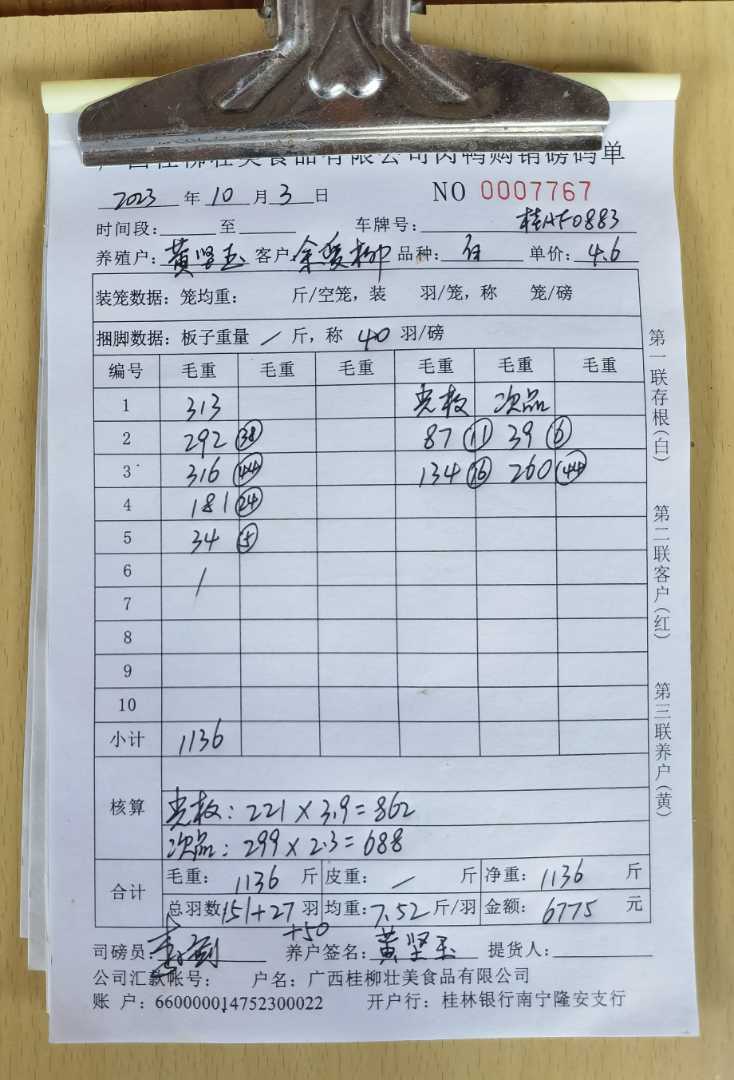 广西桂柳壮美食品有限公司肉鸭购销磅码单
2023 年 10 月 3 日 NO 0007767
时间段: 至 车牌号: 桂AF0883
养殖户: 黄坚玉 客户: 余爱柳 品种: 白 单价: 4.6
装笼数据: 笼均重: 斤/空笼, 装 羽/笼, 称 笼/磅
捆脚数据: 板子重量 / 斤, 称 40 羽/磅
编号 毛重 毛重 毛重 毛重 毛重 毛重
1 313 光板 次品
2 292 38 87 11 39 6
3 316 44 134 16 260 44
4 181 24
5 34 5
6 /
7
8
9
10
小计 1136
核算
光板: 221 × 3.9 = 862
次品: 299 × 2.3 = 688
合计
毛重: 1136 斤 皮重: / 斤 净重: 1136 斤
总羽数 151+27 羽 均重: 7.52 斤/羽 金额: 6775 元
+50
司磅员: 养户签名: 黄坚玉 提货人:
公司汇款帐号: 户名: 广西桂柳壮美食品有限公司
账 户: 660000014752300022 开户行: 桂林银行南宁隆安支行
第一联存根(白)
第二联客户(红)
第三联养户(黄)